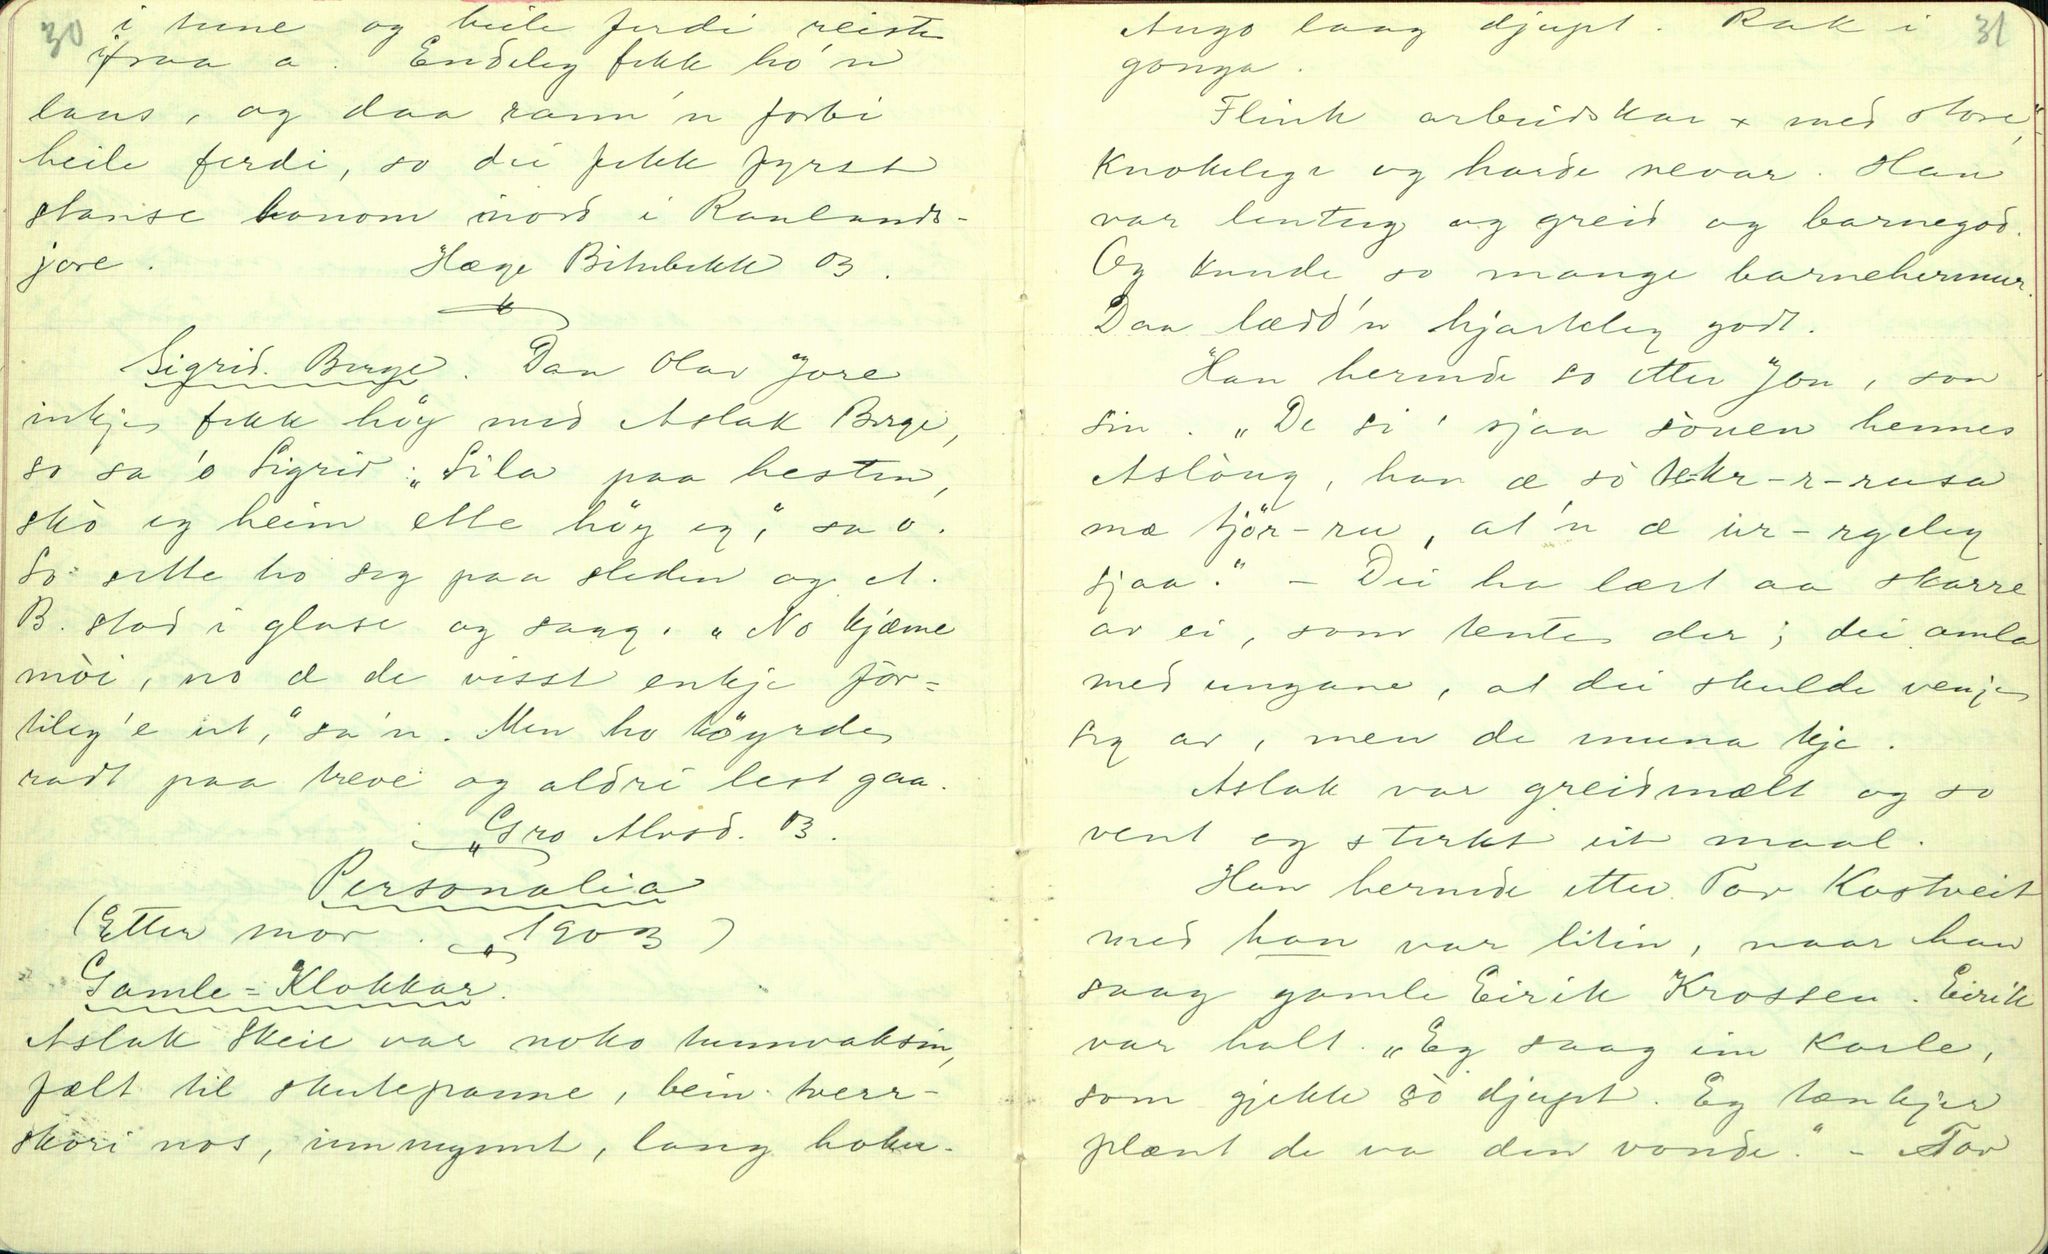 30
i tune og heile ferdi reiste
ifraa a. Endeleg fekk ho'n
laus, og daa rann'n forbi
heile ferdi, so dei fekk fyrst
stanse honom nord i Raulands-
jore. Hæge Bitubekk 03.
Sigrid Berge. Daa Olav Jore
inkje fekk höy med Aslak Berge,
so sa'o Sigrid: „Sila paa hesten,
skò eg heim ette höy eg," sa o.
So sette ho seg paa sleden og A.
B. stod i glase og saag. „No kjæme
mòi, no æ de visst enkje för=
tileg'e ut," sa'n. Men ho köyrde
radt paa treve og aldri lest gaa.
Gro Alvsd. 03.
Personalia
(Etter mor. 1903)
Gamle=Klokkar.
Aslak Skeie var noko tunnvaksin,
fælt til skutepanne, bein tverr-
skori nos, innmynnt, lang hoku.
31
Augo laag djupt. Rak i
gonga.
Flink arbeidskar x med store,
knokelege og harde nevar. Han
var lentug og greid og barnegod.
Og kunde so mange barnehermur.
Daa lædd'n hjarteleg godt.
Han hermde so etter Jon, son
sin. „De si' sjaa sònen hennes
Aslòug, han æ sò te-kr-r-rusa
mæ tjör-ru, at'n æ ur-rgeleg
sjaa." – Dei ha lært aa skarre
av ei, som tente der; dei amla
med ungane, at dei skulde venje
seg av, men de muna kje.
Aslak var greidmælt og so
vent og sterkt eit maal.
Han hermde etter Tor Kostveit
med han var litin, naar han
saag gamle Eirik Krossen. Eirik
var halt. „Eg saag ein Karle,
som gjekk sò djupt. Eg tænkjer
plænt de va den vonde." – Tor